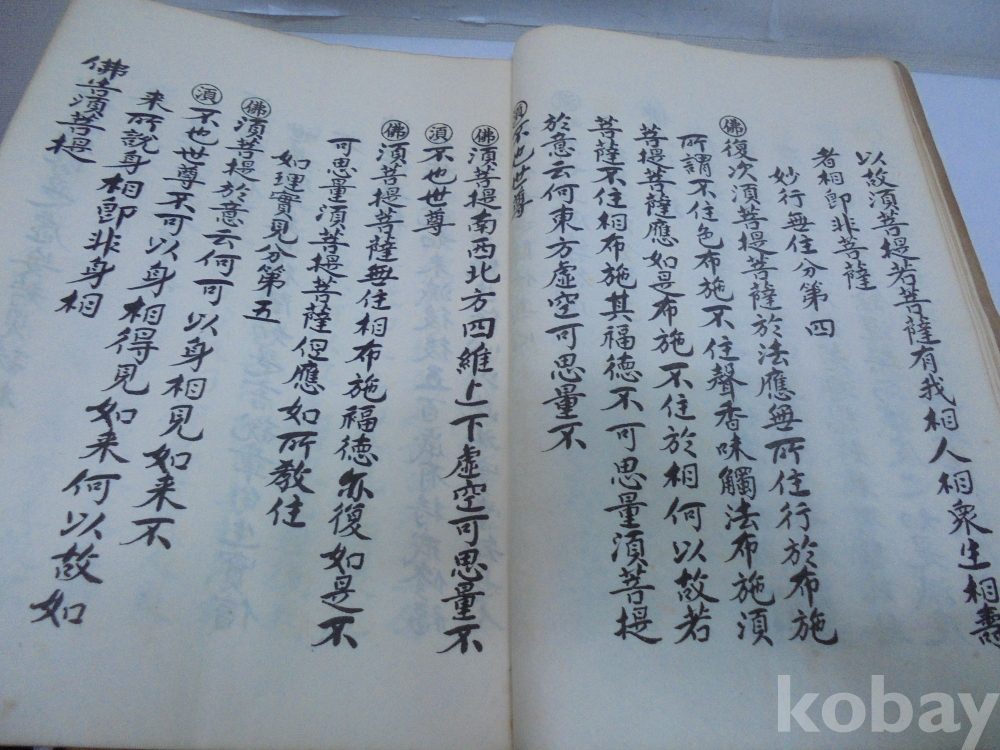 以故須菩提若菩薩有我相人相衆生相壽
者相卽非菩薩
妙行無住分第四
佛復次須菩提菩薩於法應無所住行於布施
所謂不住色布施不住聲香味觸法布施須
菩提菩薩應如是布施不住於相何以故若
菩薩不住相布施其福德不可思量須菩提
於意云何東方虛空可思量不
須不也世尊
佛須菩提南西北方四維上下虛空可思量不
須不也世尊
佛須菩提菩薩無住相布施福德亦復如是不
可思量須菩提菩薩但應如所敎住
如理實見分第五
佛須菩提於意云何可以身相見如來不
須不也世尊不可以身相得見如來何以故如
來所說身相卽非身相
佛告須菩提
kobay